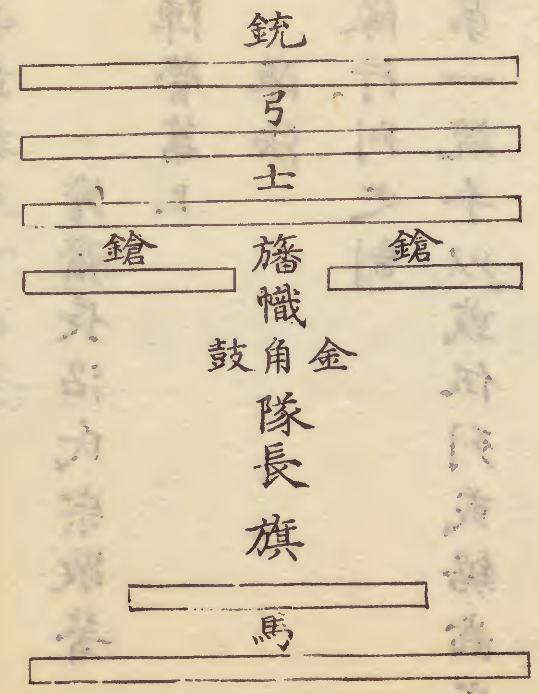 銃
弓
士
鎗 旛幟 鎗
鼓角金
隊長
旗
馬